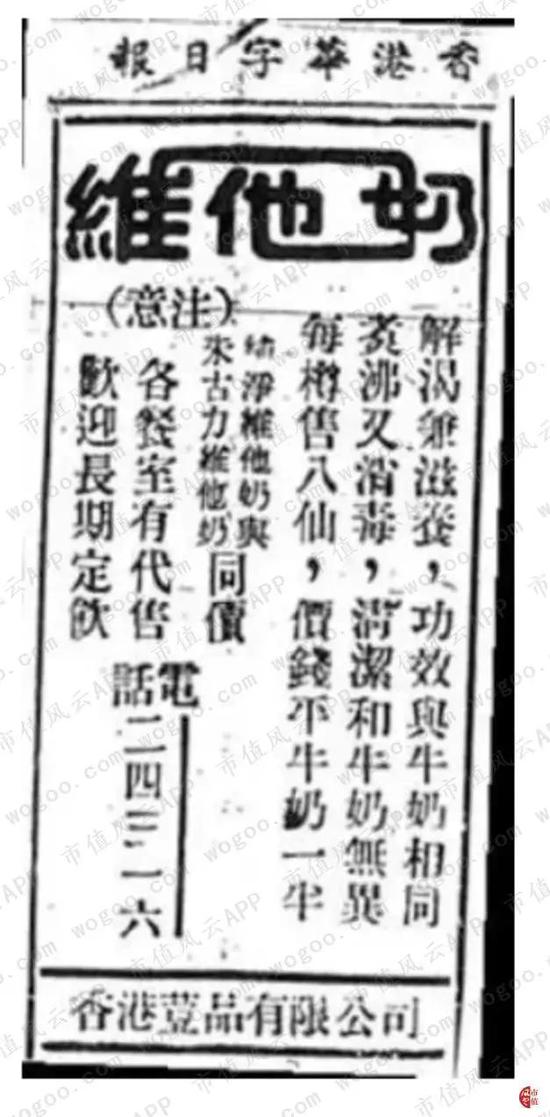 香港華字日報
維他奶
(注意)
解渴兼滋養，功效與牛奶相同
煮沸又消毒，清潔和牛奶無異
每樽售八仙，價錢平牛奶一半
淨維他奶與
朱古力維他奶
同價
各餐室有代售
歡迎長期定飲
電話二四三一六
香港荳品有限公司
市值风云APP
wogoo.com
市值风云